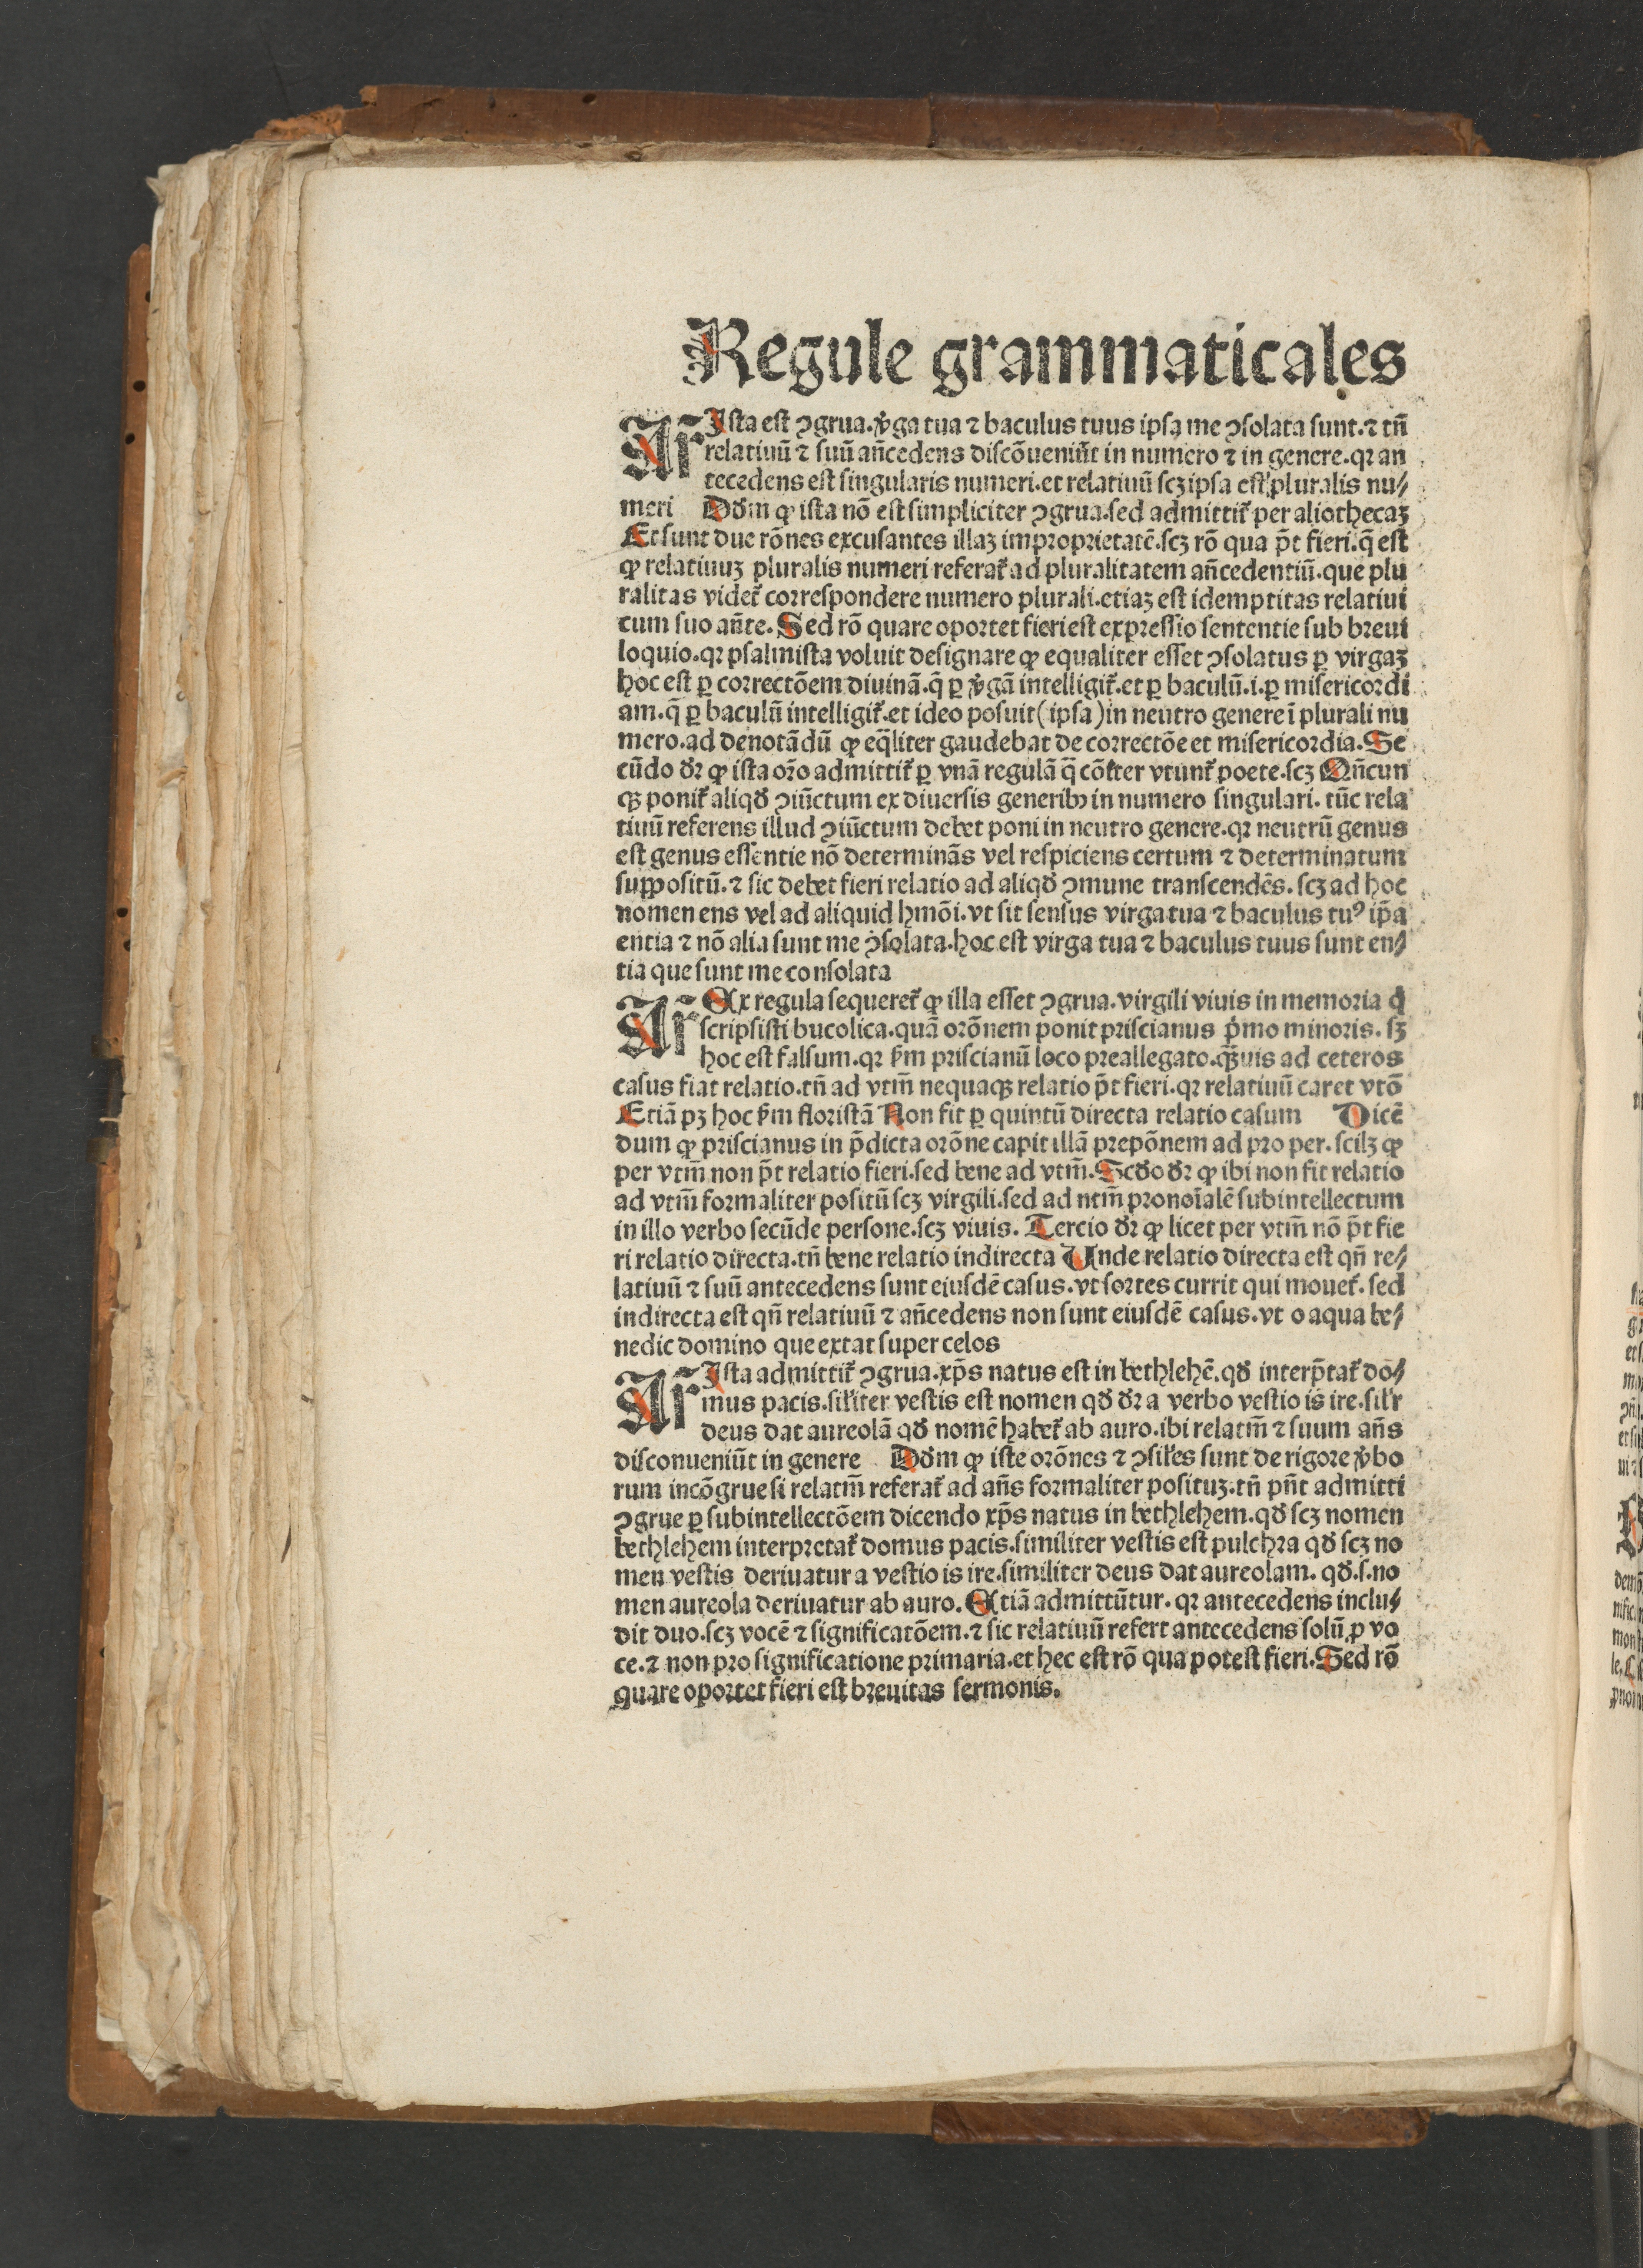 Regule grammaticales
Ar̃ Ista est ꝯgrua. v̓ga tua ⁊ baculus tuus ipsa me ꝯsolata sunt. ⁊ tñ
relatiuũ ⁊ suũ añcedens discõueniũt in numero ⁊ in genere. qꝛ an
tecedens est singularis numeri. et relatiuũ scꝫ ipsa est pluralis nu⸗
meri Dd̓m ꝙ ista nõ est simpliciter ꝯgrua. sed admittit̃ per aliothecaꝫ
Et sunt due rõnes excusantes illaꝫ improprietatẽ. scꝫ rõ qua p̃t fieri. q̃ est
ꝙ relatiuuꝫ pluralis numeri referat̃ ad pluralitatem añcedentiũ. que plu
ralitas videt̃ correspondere numero plurali. etiaꝫ est idemptitas relatiui
cum suo añte. Sed rõ quare oportet fieri est expressio sententie sub breui
loquio. qꝛ psalmista voluit designare ꝙ equaliter esset ꝯsolatus ꝑ virgaꝫ
hoc est ꝑ correctõem diuinã. q̃ ꝑ v̓gã intelligit̃. et ꝑ baculũ. i. ꝑ misericordi
am. q̃ ꝑ baculũ intelligit̃. et ideo posuit (ipsa) in neutro genere ĩ plurali nu
mero. ad denotãdũ ꝙ eq̃liter gaudebat de correctõe et misericordia. Se
cũdo dr̃ ꝙ ista oro̅ admittit̃ ꝑ vnã regulã q̃ cõit̃er vtunt̃ poete. scꝫ Qñcun
qꝫ ponit̃ aliqd̓ ꝯiũctum ex diuersis generibꝰ in numero singulari. tũc rela
tiuũ referens illud ꝯiũctum debet poni in neutro genere. qꝛ neutrũ genus
est genus essentie nõ determinãs vel respiciens certum ⁊ determinatum
suppositũ. ⁊ sic debet fieri relatio ad aliqd̓ ꝯmune transcendẽs. scꝫ ad hoc
nomen ens vel ad aliquid hmõi. vt sit sensus virga tua ⁊ baculus tuꝰ ip̃a
entia ⁊ nõ alia sunt me ꝯsolata. hoc est virga tua ⁊ baculus tuus sunt en⸗
tia que sunt me consolata
Ar̃ Ex regula sequeret̃ ꝙ illa esset ꝯgrua. virgili viuis in memoria q̓
scripsisti bucolica. quã orõnem ponit priscianus p̓mo minoris. sꝫ
hoc est falsum. qꝛ ẜm priscianũ loco preallegato. qꝫ̃uis ad ceteros
casus fiat relatio. tñ ad vtm̃ nequaqꝫ relatio p̃t fieri. qꝛ relatiuũ caret vtõ
Etiã pꝫ hoc ẜm floristã Non fit ꝑ quintũ directa relatio casum Dicẽ
dum ꝙ priscianus in p̃dicta orõne capit illã prepõnem ad pro per. scilꝫ ꝙ
per vtm̃ non p̃t relatio fieri. sed bene ad vtm̃. Scd̓o dr̃ ꝙ ibi non fit relatio
ad vtm̃ formaliter positũ scꝫ virgili. sed ad ntm̃ pronoĩalẽ subintellectum
in illo verbo secũde persone. scꝫ viuis. Tercio dr̃ ꝙ licet per vtm̃ nõ p̃t fie
ri relatio directa. tñ bene relatio indirecta Unde relatio directa est qñ re⸗
latiuũ ⁊ suũ antecedens sunt eiusdẽ casus. vt sortes currit qui mouet̃. sed
indirecta est qñ relatiuũ ⁊ añcedens non sunt eiusdẽ casus. vt o aqua be⸗
nedic domino que extat super celos
Ar̃ Ista admittit̃ ꝯgrua. xp̃s natus est in bethlehẽ. qd̓ interp̃tat̃ do⸗
mus pacis. silit̃er vestis est nomen qd̓ dr̃ a verbo vestio is ire. sil̃r
deus dat aureolã qd̓ nomẽ habet̃ ab auro. ibi relatm̃ ⁊ suum añs
disconueniũt in genere Dd̓m ꝙ iste orõnes ⁊ ꝯsil̃es sunt de rigore v̓bo
rum incõgrue si relatm̃ referat̃ ad añs formaliter posituꝫ. tñ pñt admitti
ꝯgrue ꝑ subintellectõem dicendo xp̃s natus in bethlehem. qd̓ scꝫ nomen
bethlehem interpretat̃ domus pacis. similiter vestis est pulchra qd̓ scꝫ no
men vestis deriuatur a vestio is ire. similiter deus dat aureolam. qd̓. s. no
men aureola deriuatur ab auro. Etiã admittũtur. qꝛ antecedens inclu⸗
dit duo. scꝫ vocẽ ⁊ significatõem. ⁊ sic relatiuũ refert antecedens solũ ꝓ vo
ce. ⁊ non pro significatione primaria. et hec est rõ qua potest fieri. Sed rõ
quare oportet fieri est breuitas sermonis.